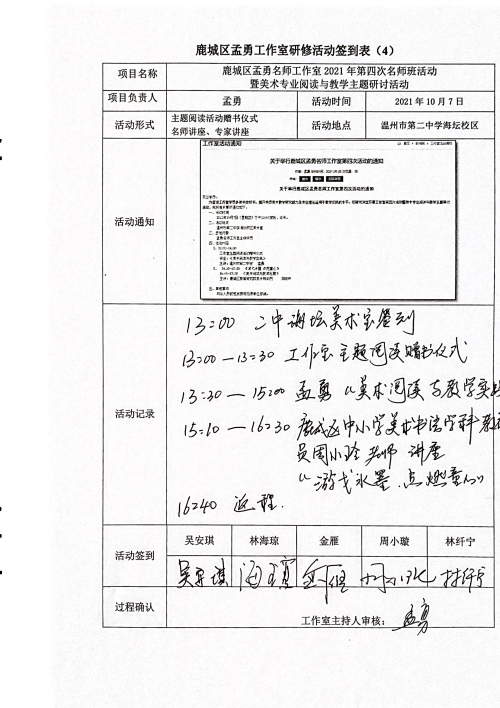 鹿城区孟勇工作室研修活动签到表（4）
项目名称
鹿城区孟勇名师工作室 2021 年第四次名师班活动
暨美术专业阅读与教学主题研讨活动
项目负责人 孟勇 活动时间 2021 年 10 月 7 日
活动形式
主题阅读活动赠书仪式
名师讲座、专家讲座
活动地点 温州市第二中学海坛校区
活动通知
工作室活动通知
关于举行鹿城区孟勇名师工作室第四次活动的通知
关于举行鹿城区孟勇名师工作室第四次活动的通知
活动记录
13:00 二中海坛美术室签到
13:00—13:30 工作室主题阅读赠书仪式
13:30—15:00 孟勇《美术阅读与教学实
15:10—16:30 鹿城区中小学美术书法学科教
员周小 老师 讲座
《游戈水墨.点燃童心》
16:40 返程.
活动签到
吴安琪 林海琼 金雁 周小璇 林纤宁
吴安琪
过程确认
工作室主持人审核： 孟勇